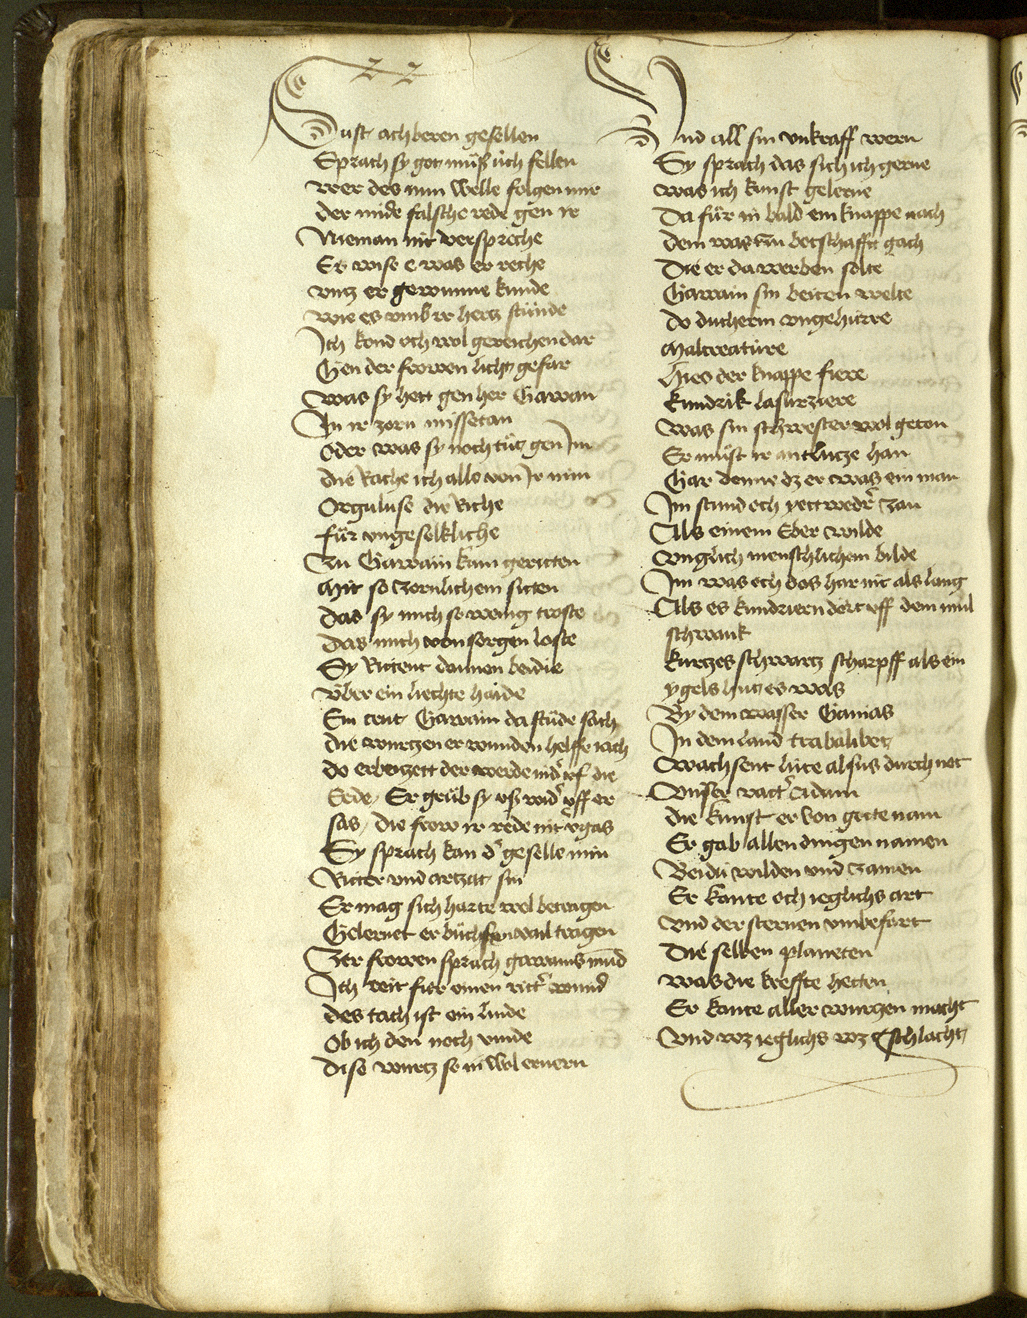 Sust achberen gesellen
Sprach sy got müß üch fellen
wer des nun welle folgen mir
der mide falsche rede gen ir
Nieman nit verspreche
Er wise e was er reche
vntz er gewinne kunde
wie es vmb ir hertz stünde
Ich kond och wol gereichen dar
Gen der frowen licht gefar
Was sy hett gen her Gawan
In ir zorn missetan
Oder was sy noch tüt gen Im
die Rache ich alle von Ir nim
Orguluse die Riche
für vngeselkliche
Zu Gawain kam geritten
Mit so zornlichem sitten
Das sy mich so wenig troste
Das mich von sorgen loste
Sy Rittent dannen beidie
Vber ein liechte haide
Ein crut Gawain da stüde sach
die wurtzen er wunden helffe iach
do erbeizett der werde nid' vf die
Erde Er grüb sy vß wid' vff er
sas, die frow ir rede nit v'gas
Sy sprach kan d' geselle min
Ritter vnd artzat sin
Er mag sich harte wol betragen
Gelernet er büchsen vail tragen
Zer frowen sprach gawans mūd
Ich reit für einen ritt' wund
des tach ist ein linde
Ob ich den noch vinde
Dise wurtz so in wol ernern
Vnd all sin vnkraff wern
Sy sprach das sich ich gerne
was ich kunst gelerne
Da für in bald ein knappe nach
dem was zü botschafft gach
Die er da werben solte
Gawain sin beiten wolte
Do ducht in vngehürre
Malcreatüre
Hies der knappe fiere
Kundrik lasurziere
Was sin schwester wol geton
Er müst ir antlütze han
Gar denne dz er was ein man
Im stund och yettwedr' zan
Als einem Eber wilde
Vnglich menschlichem bilde
Im was och das har nit als lang
Als es kundrieen dort vff dem mul
schwank
kurtzes schwartz scharpff als ein
ygels hut es was
By dem wasser Ganias
In dem land trabalibet
Wachsent lüte alsus durch not
Vnser vatt' Adam
die kunst er von gotte nam
Er gab allen dingen namen
Beidü wilden vnd zamen
Er kante och ieglichs art
Vnd der sternen vmbefart
Die selben planeten
was die kreffte hetten
Er kante aller wurtzen macht
Vnd wz ieglichs wz geschlacht